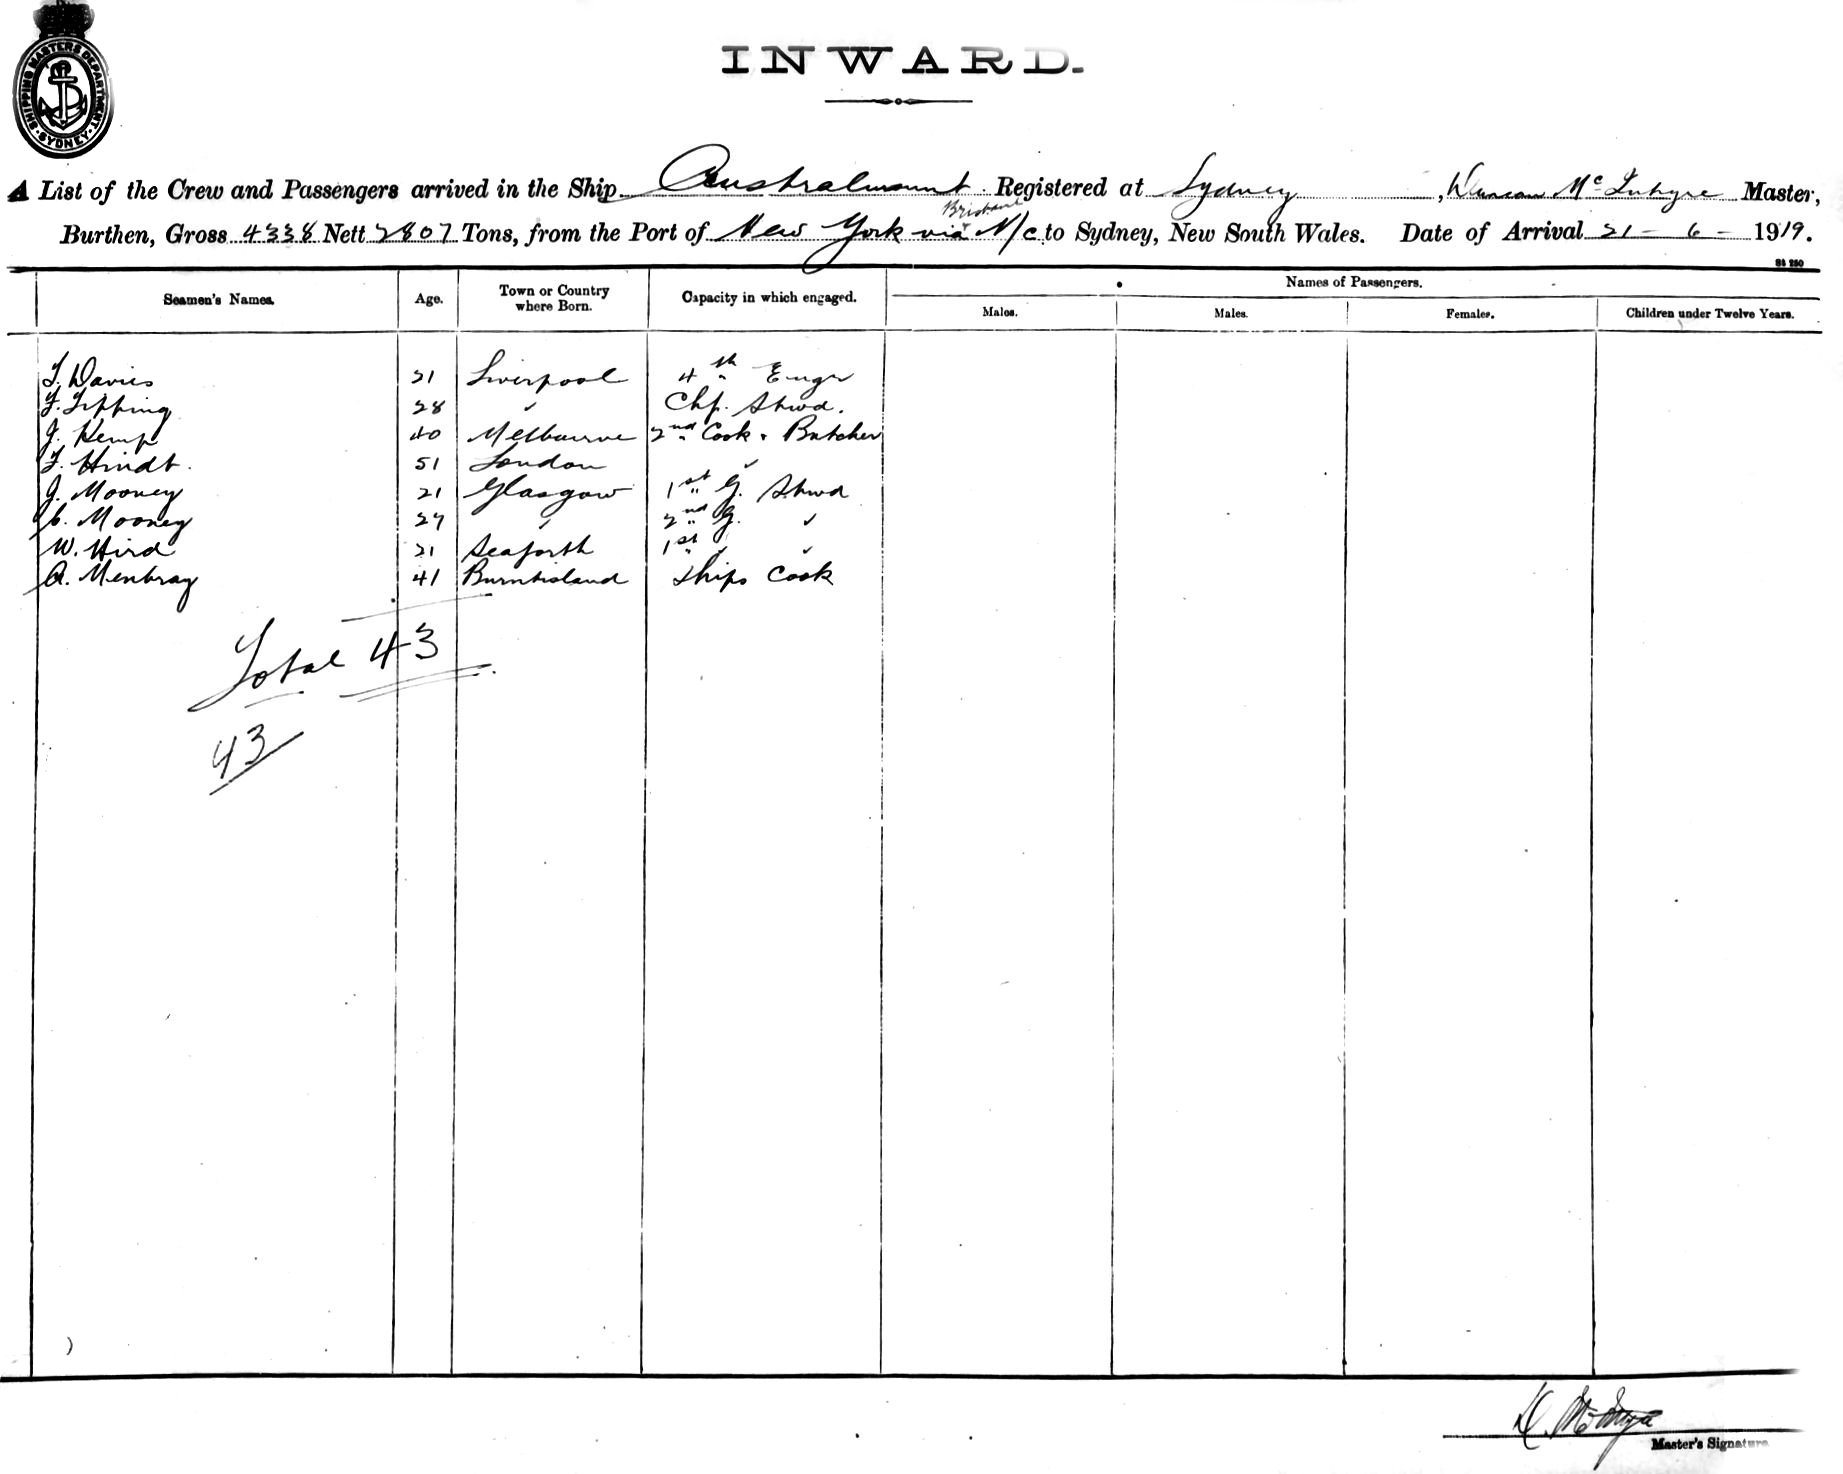 SHIPPING MASTERS DEPARTMENT
SYDNEY
INWARD.
A List of the Crew and Passengers arrived in the Ship Australmount Registered at Sydney, Duncan McIntyre Master,
Brisbane
Burthen, Gross 4338 Nett 2807 Tons, from the Port of New York via N/c to Sydney, New South Wales. Date of Arrival 21 - 6 - 1919.
St 250
Seamen's Names. Age. Town or Country where Born. Capacity in which engaged. Names of Passengers.
Males. Males. Females. Children under Twelve Years.
Davies 21 Liverpool 4th Engr
F. Tipping 28 " Chf. Stwd.
J. Kemp 40 Melbourne 2nd Cook & Butcher
51 London "
J. Mooney 21 Glasgow 1st G. Stwd
Mooney 27 " 2nd G. "
W. Hird 21 Seaforth 1st " "
A. 41 Burntisland Ships Cook
Total 43
43
D. McIntyre
Master's Signature